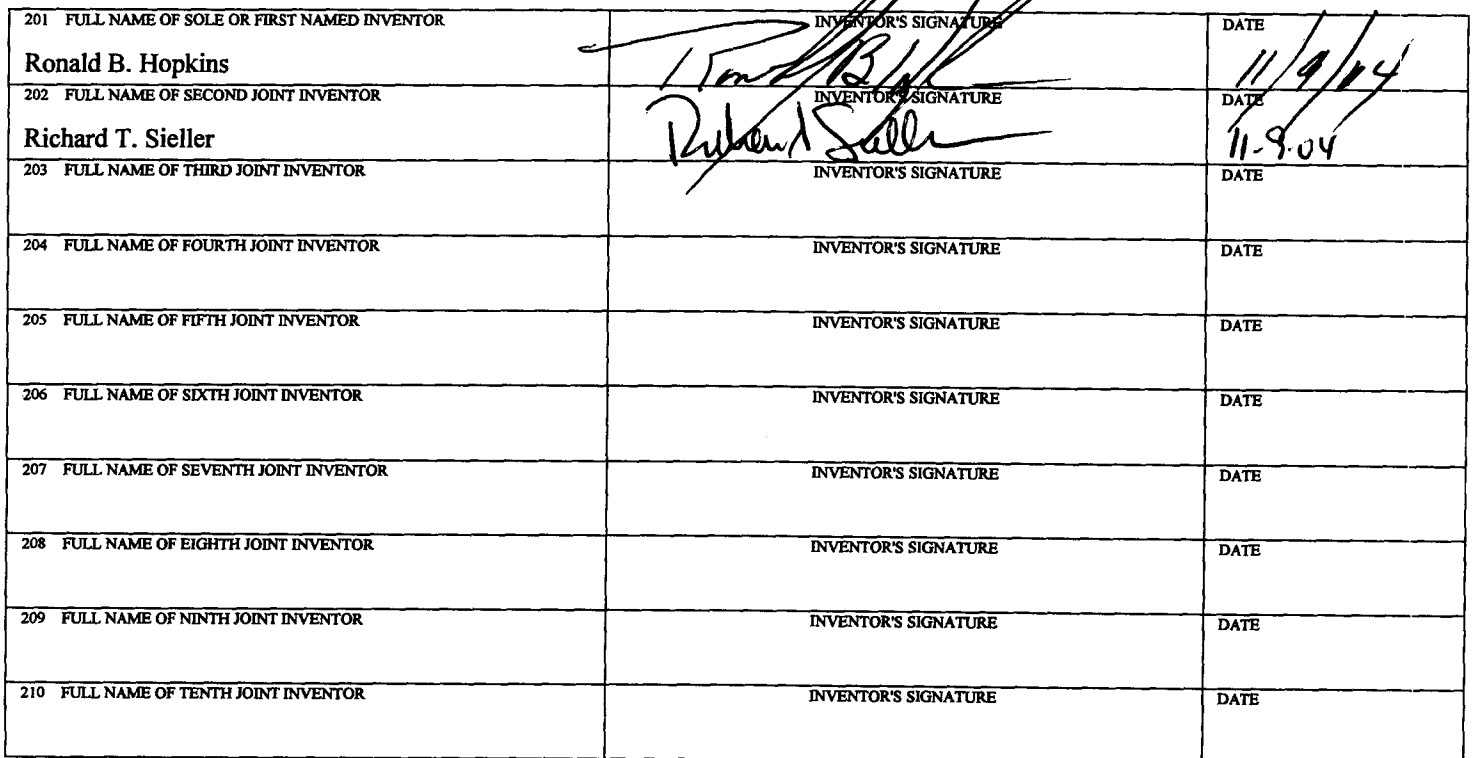 201 FULL NAME OF SOLE OR FIRST NAMED INVENTOR INVENTOR'S SIGNATURE DATE
Ronald B. Hopkins 11/9/04
202 FULL NAME OF SECOND JOINT INVENTOR INVENTOR'S SIGNATURE DATE
Richard T. Sieller 11-9-04
203 FULL NAME OF THIRD JOINT INVENTOR INVENTOR'S SIGNATURE DATE
204 FULL NAME OF FOURTH JOINT INVENTOR INVENTOR'S SIGNATURE DATE
205 FULL NAME OF FIFTH JOINT INVENTOR INVENTOR'S SIGNATURE DATE
206 FULL NAME OF SIXTH JOINT INVENTOR INVENTOR'S SIGNATURE DATE
207 FULL NAME OF SEVENTH JOINT INVENTOR INVENTOR'S SIGNATURE DATE
208 FULL NAME OF EIGHTH JOINT INVENTOR INVENTOR'S SIGNATURE DATE
209 FULL NAME OF NINTH JOINT INVENTOR INVENTOR'S SIGNATURE DATE
210 FULL NAME OF TENTH JOINT INVENTOR INVENTOR'S SIGNATURE DATE